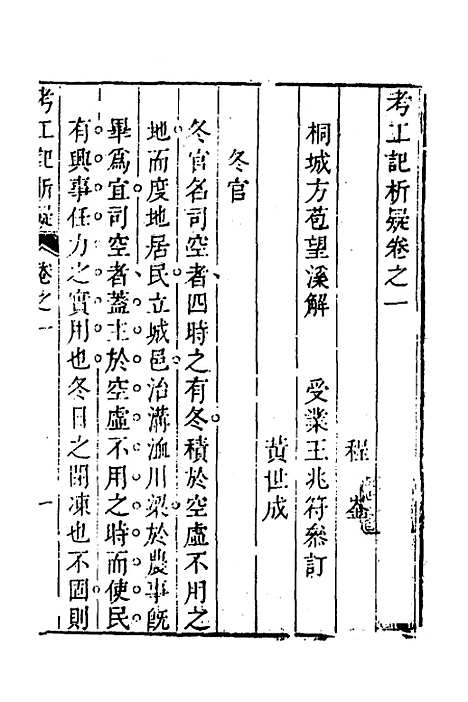 考工記析疑卷之一
程崟
桐城方苞望溪解 受業王兆符叅訂
黃世成
冬官
冬官名司空者四時之有冬積於空虛不用之
地而度地居民立城邑治溝洫川梁於農事旣
畢爲宜司空者蓋主於空虛不用之時而使民
有興事任力之實用也冬日之閉凍也不固則
考工記析疑 卷之一 一